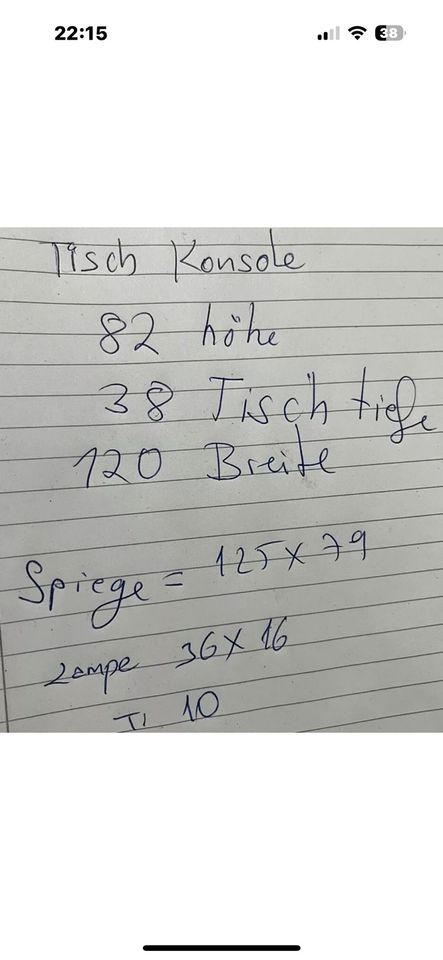 22:15
38
Tisch Konsole
82 höhe
38 Tisch tiefe
120 Breite
Spiege = 125 x 79
Lampe 36 x 16
10